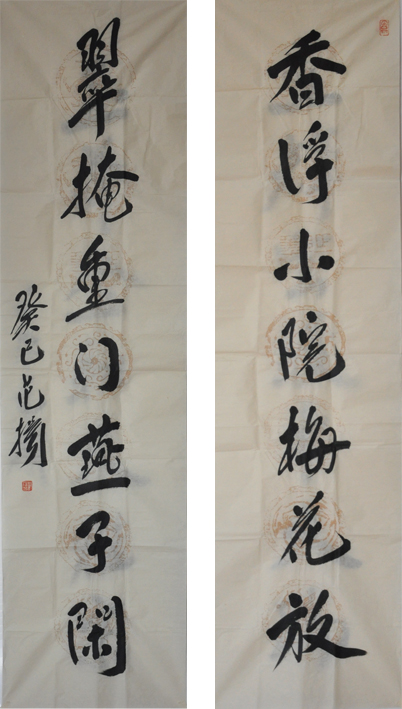 香浮小院梅花放
翠掩重门燕子閑
癸巳范